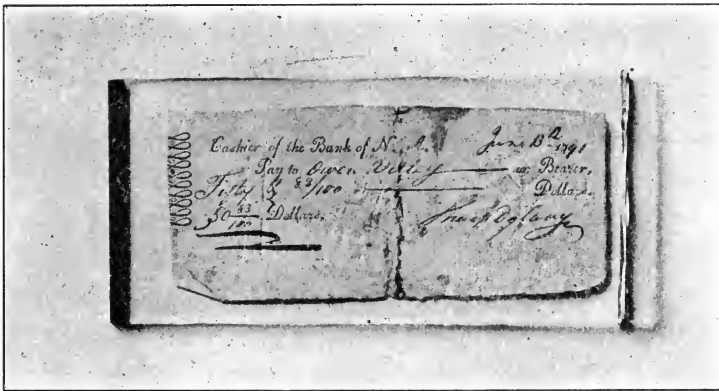 Cashier of the Bank of N. A. June 13th 1791
Pay to Owen or Bearer,
Fifty & 83/100 Dollars.
50 83/100 Dollars.